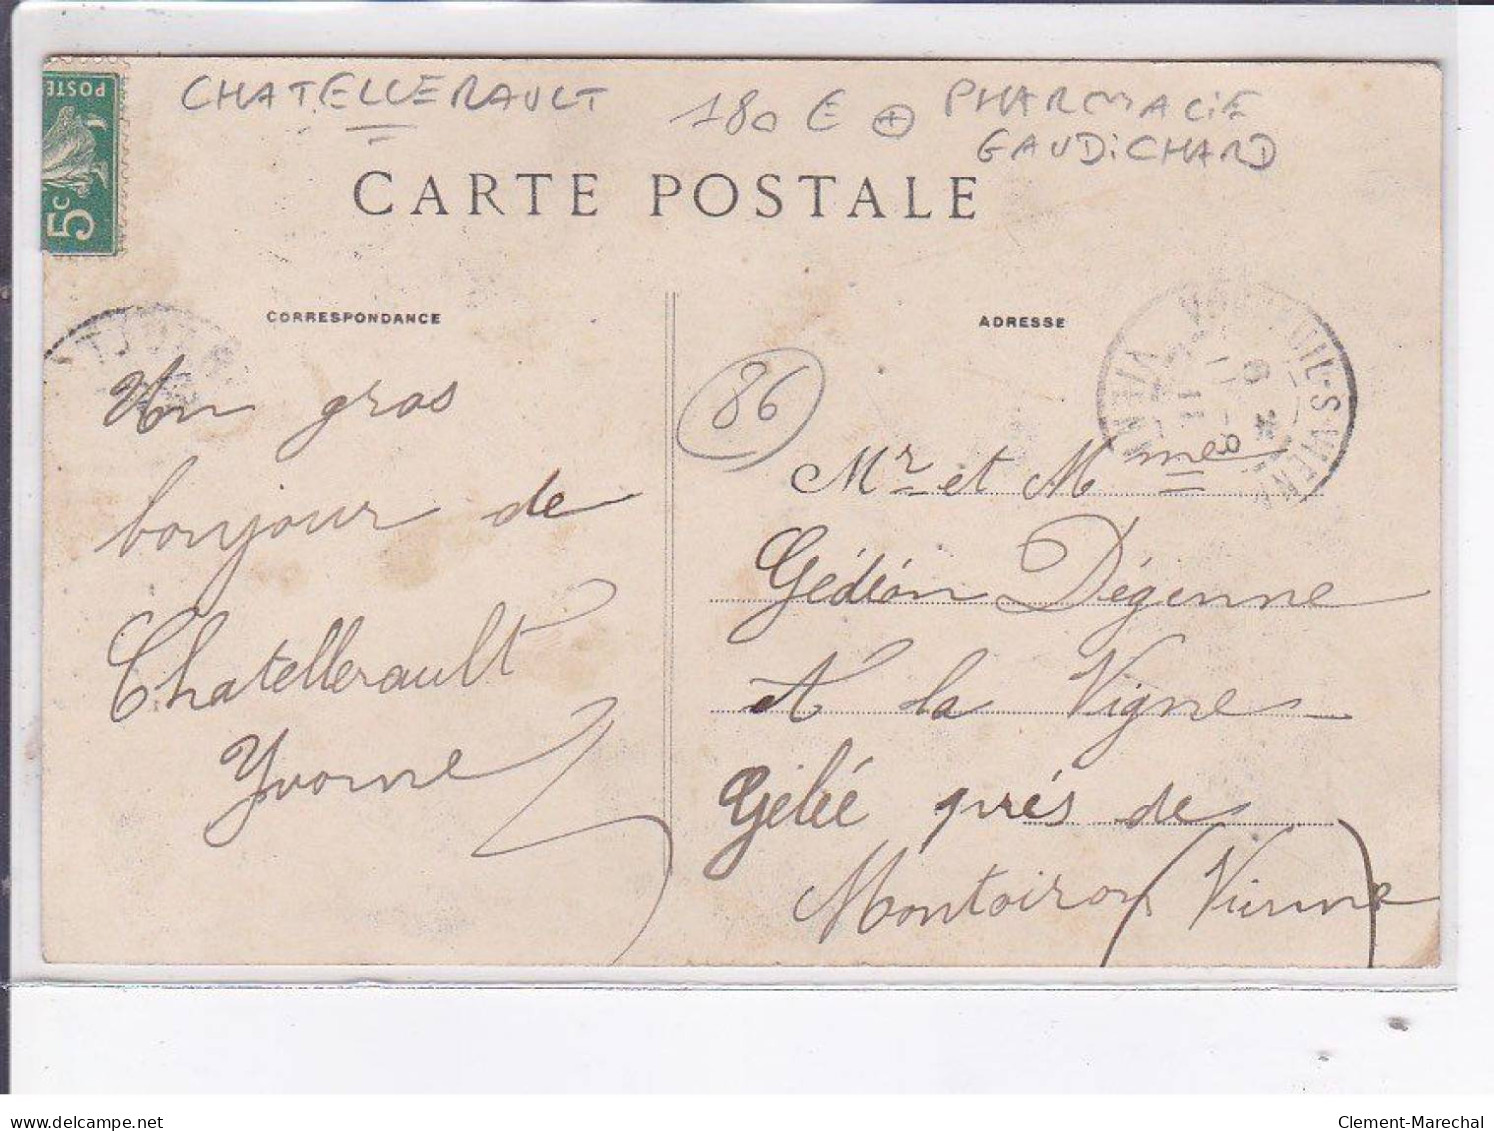 CHATELLERAULT
180 €
PHARMACIE
GAUDiCHARD
POSTE
5c
CARTE POSTALE
CORRESPONDANCE
ADRESSE
Un gros
bonjour de
Chatellerault
Yvonne
86
Mr et Mme
Gédéon Dégenne
A la Vigne
Gelée prés de
Montoiron (Vienne)
delcampe.net
Clement-Marechal